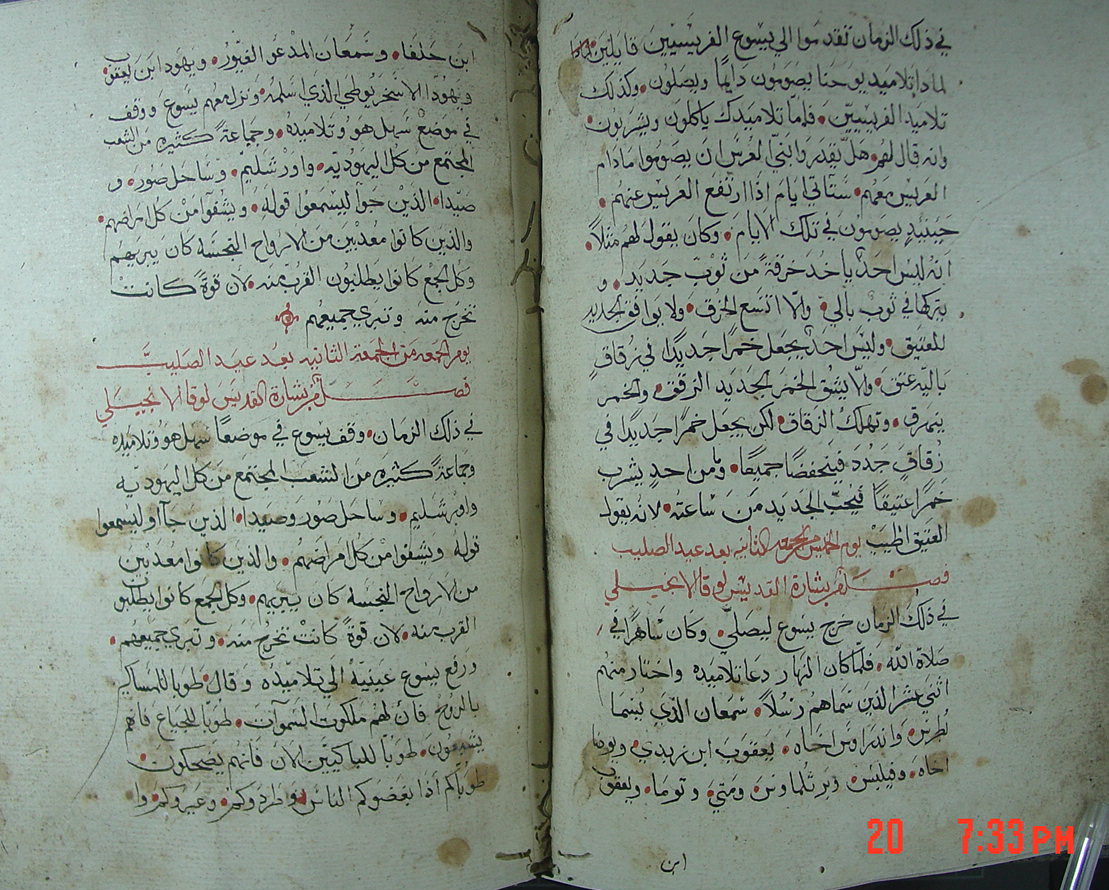 في ذلك الزمان تقدموا الي يسوع الفريسيين قايلين
لماذا تلاميد يوحنا يصومون دايما ويصلون وكذلك
تلاميد الفريسيين فاما تلاميدك ياكلون ويشربون
وانه قال لهم هل يقدروا بني العرس ان يصوموا مادام
العريس معهم ستاتي ايام اذا ارتفع العريس عنهم
حينيذ يصومون في تلك الايام وكان يقول لهم مثلا
انه ليس احد ياخد خرقة من ثوب جديد و
يتركها في ثوب بالي والا اتسع الخرق ولا يوافق الجديد
للعتيق وليس احد يجعل خمرا جديدا في زقاق
بالية عتق والا يشق الخمر الجديد الزقق والخمر
يتمرق وتهلك الزقاق لكن يجعل خمرا جديدا في
زقاق جدد فيتحفضا جميعا وما من احد يشرب
خمرا عتيقا فيحب الجديد من ساعته لانه يقول
العتيق اطيب يوم الخميس من الجمعه الثانيه بعد عيد الصليب
فصل من بشارة القديس لوقا الانجيلي
في ذلك الزمان خرج يسوع ليصلي وكان ساهرا في
صلاة الله فلما كان النهار دعا تلاميده واختار منهم
اثني عشر الذين سماهم رسلا سمعان الذي يسما
بطرس واندراوس اخاه يعقوب ابن زبدي ويوحنا
اخاه وفيلبس وبرثلماوس ومتي وتوما ويعقوب
ابن
ابن حلفا وسمعان المدعو الغيور ويهودا ابن يعقوب
ويهودا الاسخريوطي الذي اسلمه ونزل معهم يسوع ووقف
في موضع سهل هو وتلاميده وجماعة كثيره من الشعب
المجتمع من كل اليهوديه واورشليم وساحل صور و
صيدا الذين جوا ليسمعوا قوله ويشفوا من كل امراضهم
والذين كانوا معدبين من الارواح النجسه كان يبريهم
وكل الجمع كانوا يطلبون القرب منه لان قوة كانت
تخرج منه وتبري جميعهم
يوم الجمعه من الجمعه الثانيه بعد عيد الصليب
فصل من بشارة القديس لوقا الانجيلي
في ذلك الزمان وقف يسوع في موضعا سهل هو وتلاميده
وجماعة كثيره من الشعب المجتمع من كل اليهوديه
واورشليم وساحل صور وصيدا الذين جآوا ليسمعوا
قوله ويشفوا من كل امراضهم والذين كانوا معدبين
من الارواح النجسه كان يبريهم وكل الجمع كانوا يطلبوا
القرب منه لان قوة كانت تخرج منه وتبري جميعهم
ورفع يسوع عينيه الي تلاميده وقال طوبا للمساكين
بالروح فان لهم ملكوت السموات طوبا للجياع فانهم
يشبعون طوبا للباكيين الان فانهم يضحكون
طوباكم اذا بغضوكم الناس وطردوكم وعيروكم وا
20 7:33 PM